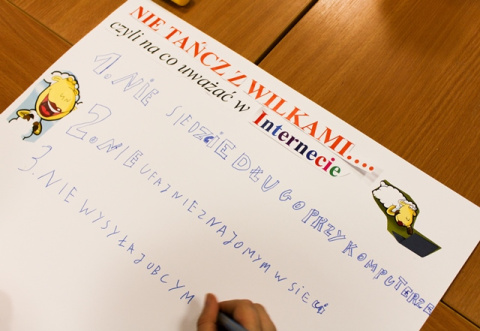 NIE TAŃCZ Z WILKAMI....
czyli na co uważać w
Internecie
1. NIE SIEDZIE DŁUGO PRZY KOMPUTERZE
2. NIE UFAJ NIEZNAJOMYM W SIECI
3. NIE WYSYŁAJ OBCYM